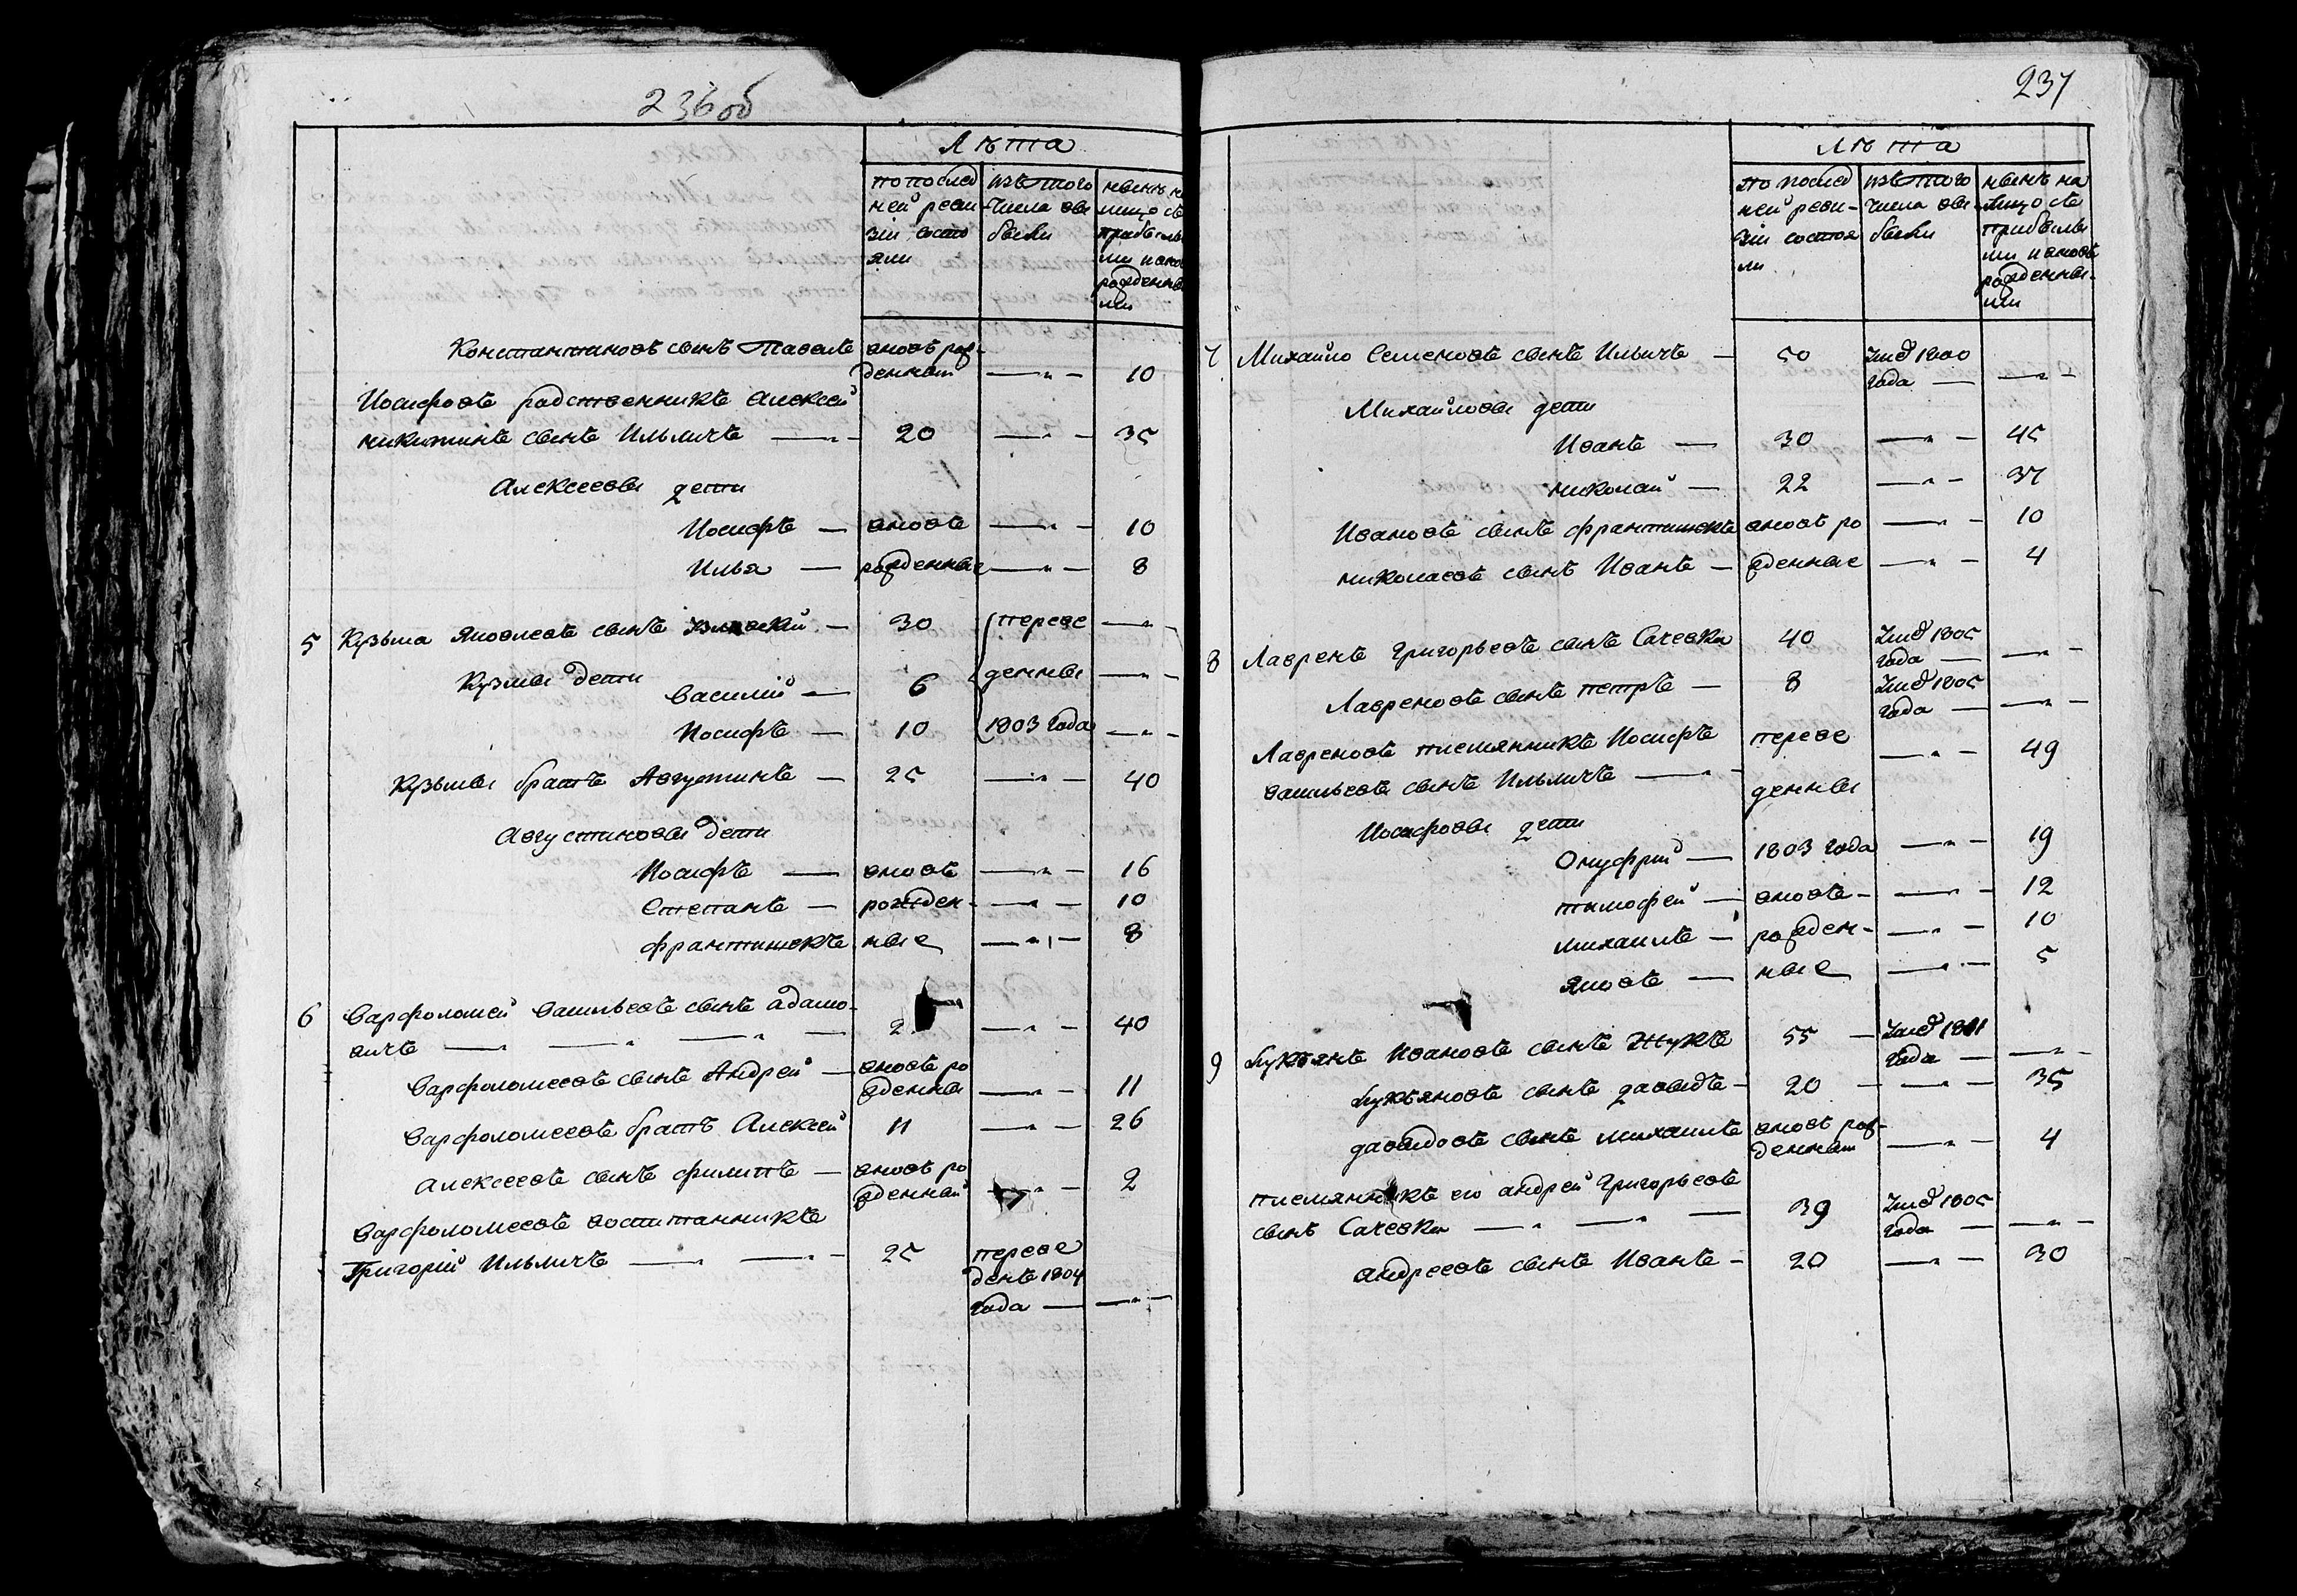 236 об
Лѣта
по послед
ней реви
зіи состо
яли
изъ того
числа вы
были
нынѣ н
лицо съ
прибылы
ми и вно
рожденны
ми
Константиновъ сынъ Павелъ вновь рож-
денный 10
Иосифовъ родственникъ Алексей
Никитинъ сынъ Ильичъ 20 35
Алексеевы дети
Иосифъ вновь 10
Илья рожденные 8
5 Кузьма Яковлевъ сынъ 30 переве
Кузмы дети
Василий 6 дены
Иосифъ 10 1803 года
Кузьмы братъ Августинъ 25 40
Августиновы дети
Иосифъ вновь 16
Степанъ рожден- 10
Францишекъ ные 8
6 Варфоломей Васильевъ сынъ Адамо-
вичъ 2 40
Варфоломеевъ сынъ Андрей вновь ро
жденны 11
Варфоломеевъ братъ Алексей 11 26
Алексеевъ сынъ Филипъ вновь ро
жденный 2
Варфоломеевъ воспитанникъ
Григорій Ильичъ 25 переве
денъ 1804
года
237
Лѣта
по послед
ней реви-
зіи состоя
ли
изъ того
числа вы
были
нынѣ на
лицо съ
прибылы
ми и вновь
рожденны-
ми
7 Михайло Семеновъ сынъ Ильичъ 50 Умер 1800
года
Михайловы дети
Иванъ 30 45
Николай 22 37
Ивановъ сынъ Францишекъ вновь ро 10
Николаевъ сынъ Иванъ жденные 4
8 Лавренъ Григорьевъ сынъ Сачевка 40 Умер 1805
года
Лавреновъ сынъ Петръ 8 Умер 1805
года
Лавреновъ племянникъ Иосифъ переве 49
Васильевъ сынъ Ильичъ
дены
Иосифовы дети
Онуфрий 1803 года 19
Тимофей вновь 12
Михаилъ рожден- 10
Яковъ ные 5
9 Лукьянъ Ивановъ сынъ Жукъ 55 Умер 1811
года
Лукьяновъ сынъ Давыдъ 20 35
Давыдовъ сынъ Михаилъ вновь рож-
денный 4
племянникъ его Андрей Григорьевъ
сынъ Сачевка 39 Умер 1805
года
Андреевъ сынъ Иванъ 20 30